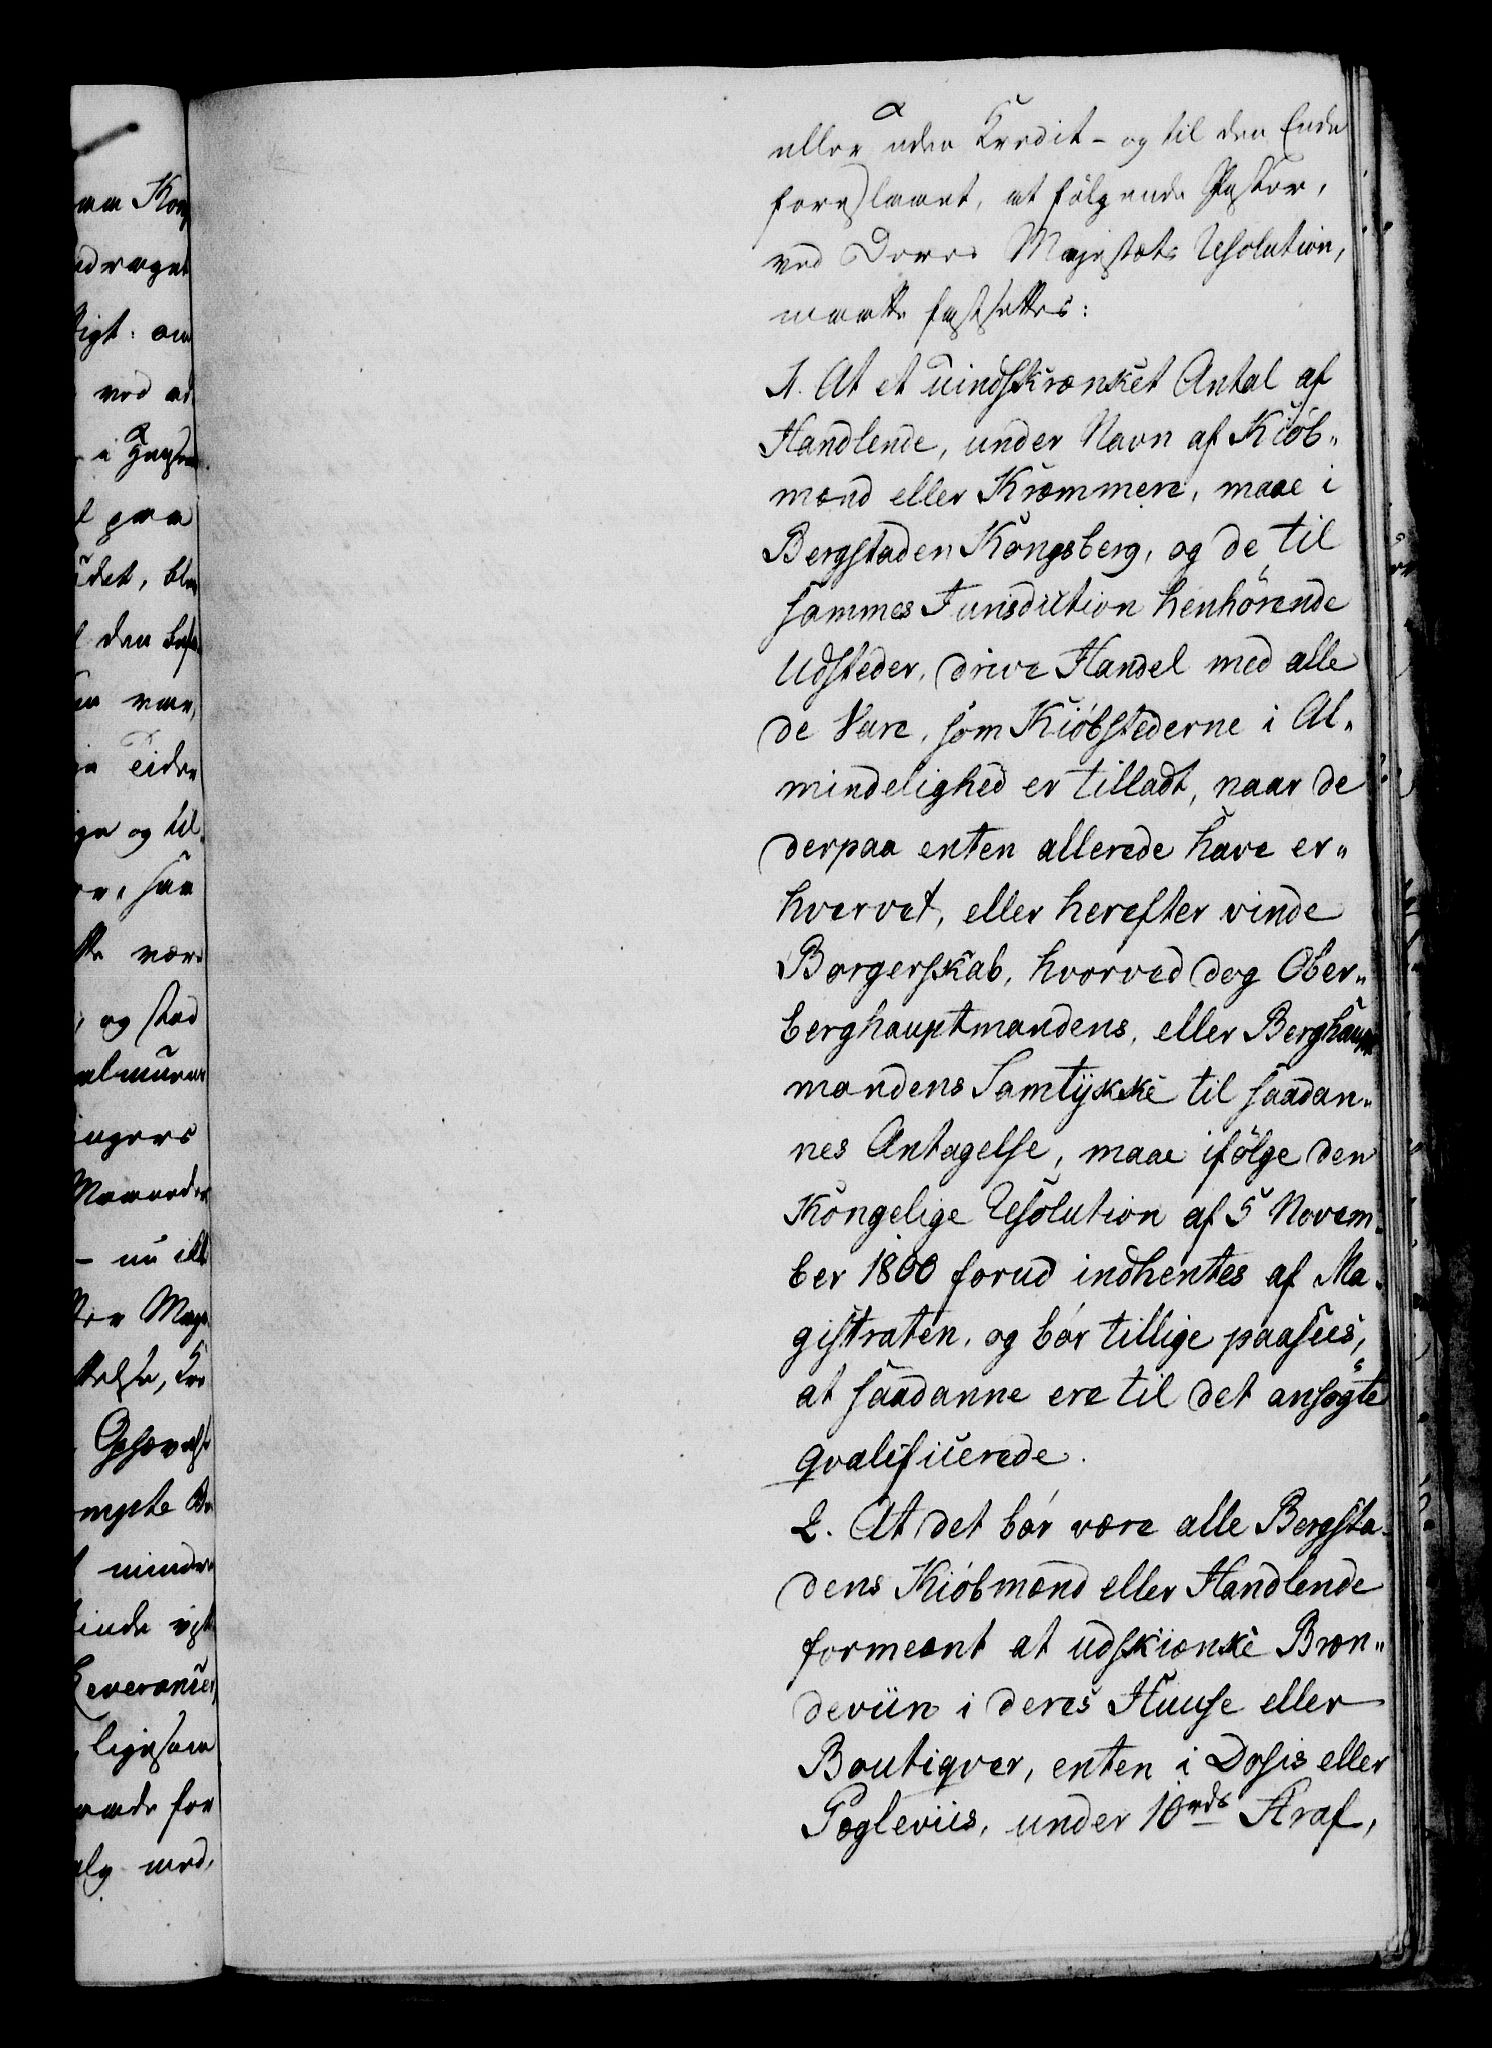 eller uden Credit - og til den Ende
foreslaaet, at følgende Poster,
ved Deres Majestæts Resolution,
maatte fastsættes:
1. At et uindskrænket Antal af
Handlende, under Navn af Kiöb„
mænd eller Kræmmere, maae i
Bergstaden Kongsberg, og de til
sammes Jurisdiction henhörende
Udsteder, drive Handel med alle
de Vare, som Kiöbstederne i Al„
mindelighed er tilladt, naar de
derpaa enten allerede have er„
hvervet, eller herefter vinde
Borgerskab, hvorved dog Ober„
berghauptmandens, eller Berghaupt
mandens Samtÿkke til saadan„
nes Antagelse, maae ifölge den
Kongelige Resolution af 5 Novem„
ber 1800 forud indhentes af Ma„
gistraten, og bör tillige paasees,
at saadanne ere til det ansögte
qvalificerede.
2. At det bör være alle Bergsta„
dens Kiöbmænd eller Handlende
formeent at udskiænke Bræn„
deviin i deres Huuse eller
Boutiqver, enten i Dosis eller
Pægleviis, under 10 rds Straf,